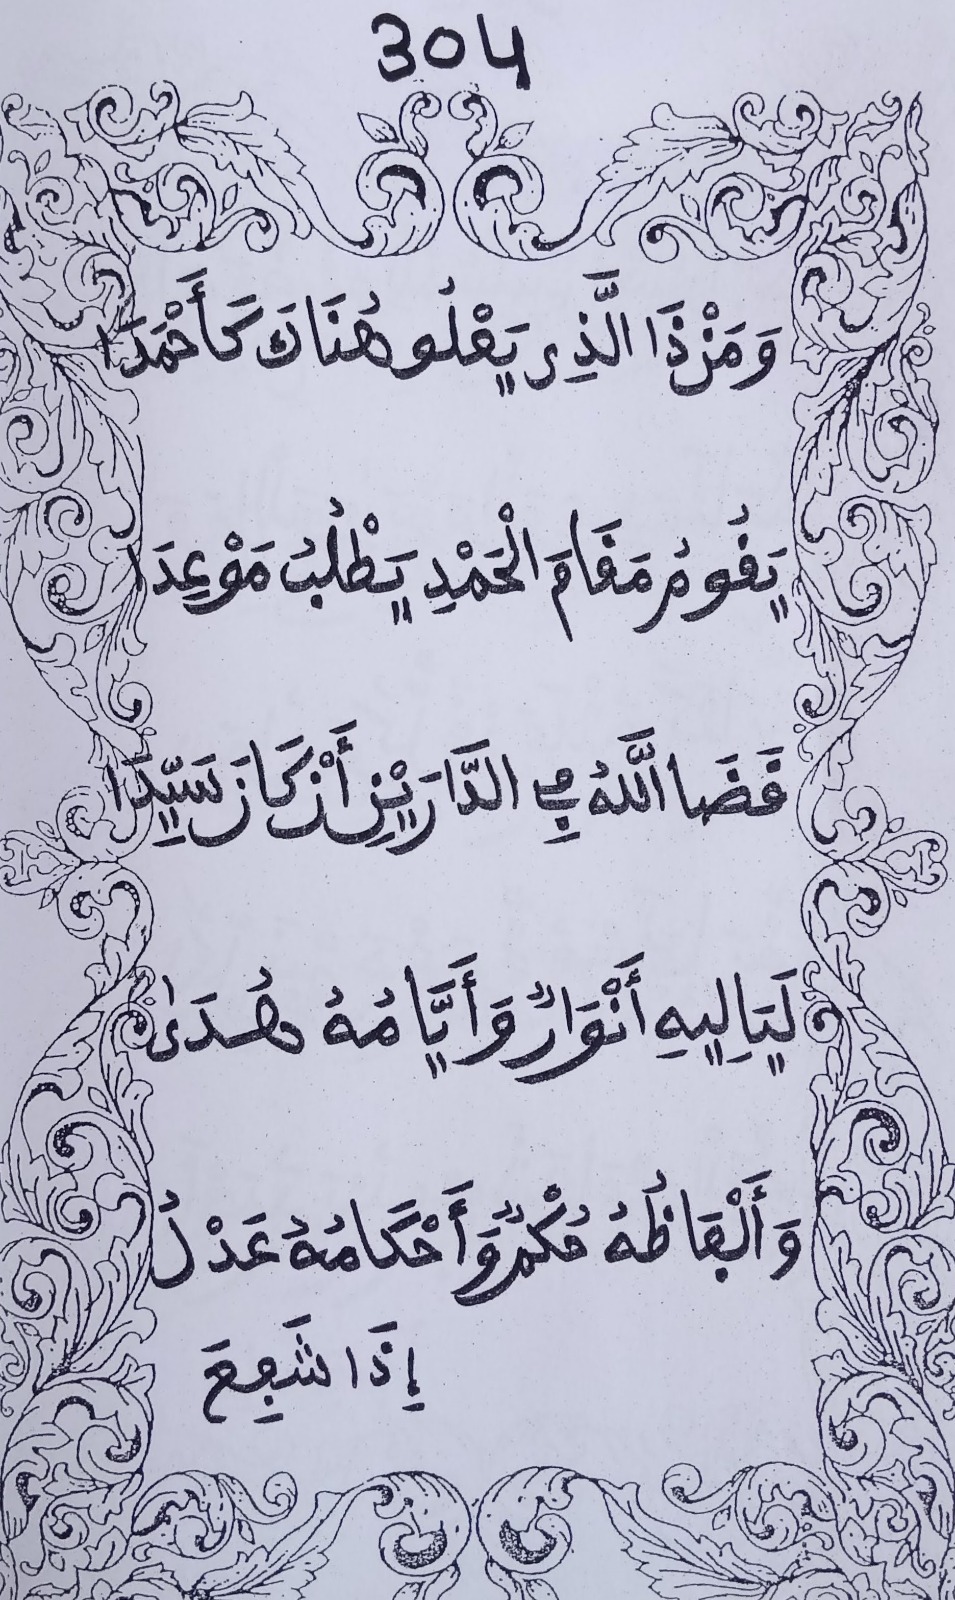 304
وَمَنْ ذَا الَّذِي يَعْلُو هُنَاكَ كَأَحْمَدَا
يَقُومُ مَقَامَ الْحَمْدِ يَطْلُبُ مَوْعِدَا
قَضَا اللَّهُ فِي الدَّارَيْنِ أَنْ كَانَ سَيِّدَا
لَيَالِيهِ أَنْوَارٌ وَأَيَّامُهُ هُدَىٰ
وَأَلْفَاظُهُ حُكْمٌ وَأَحْكَامُهُ عَدْلُ
إِذَا شَفِعَ